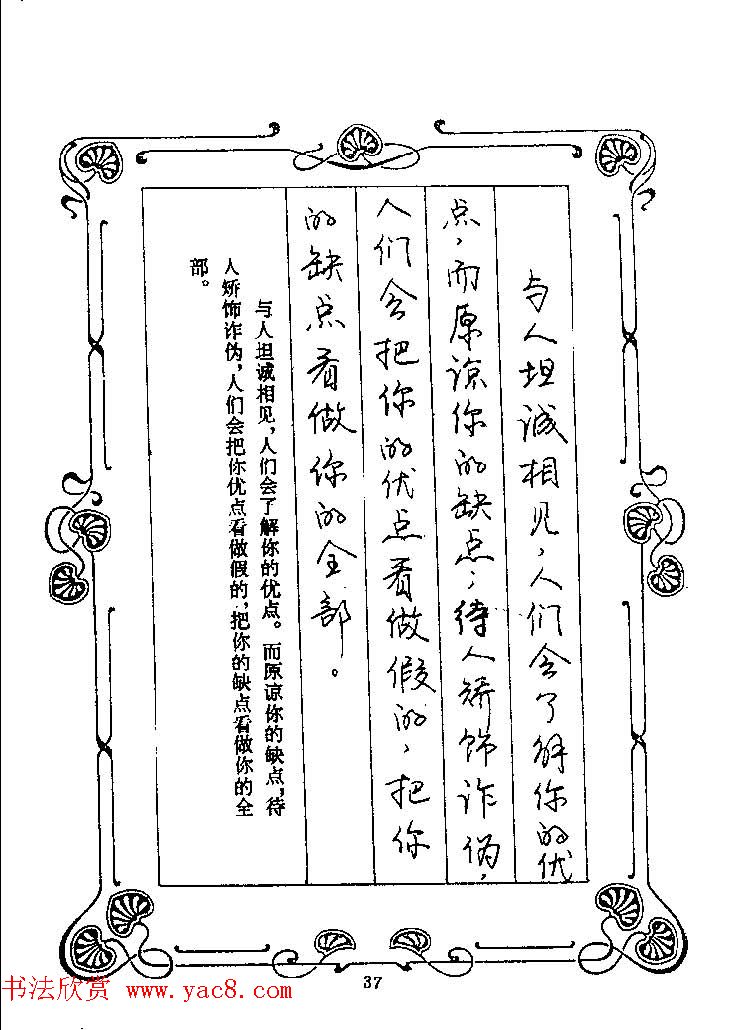 与人坦诚相见，人们会了解你的优
点，而原谅你的缺点；待人矫饰诈伪，
人们会把你的优点看做假的，把你
的缺点看做你的全部。
与人坦诚相见，人们会了解你的优点。而原谅你的缺点；待
人矫饰诈伪，人们会把你优点看做假的，把你的缺点看做你的全
部。
37
书法欣赏 www.yac8.com